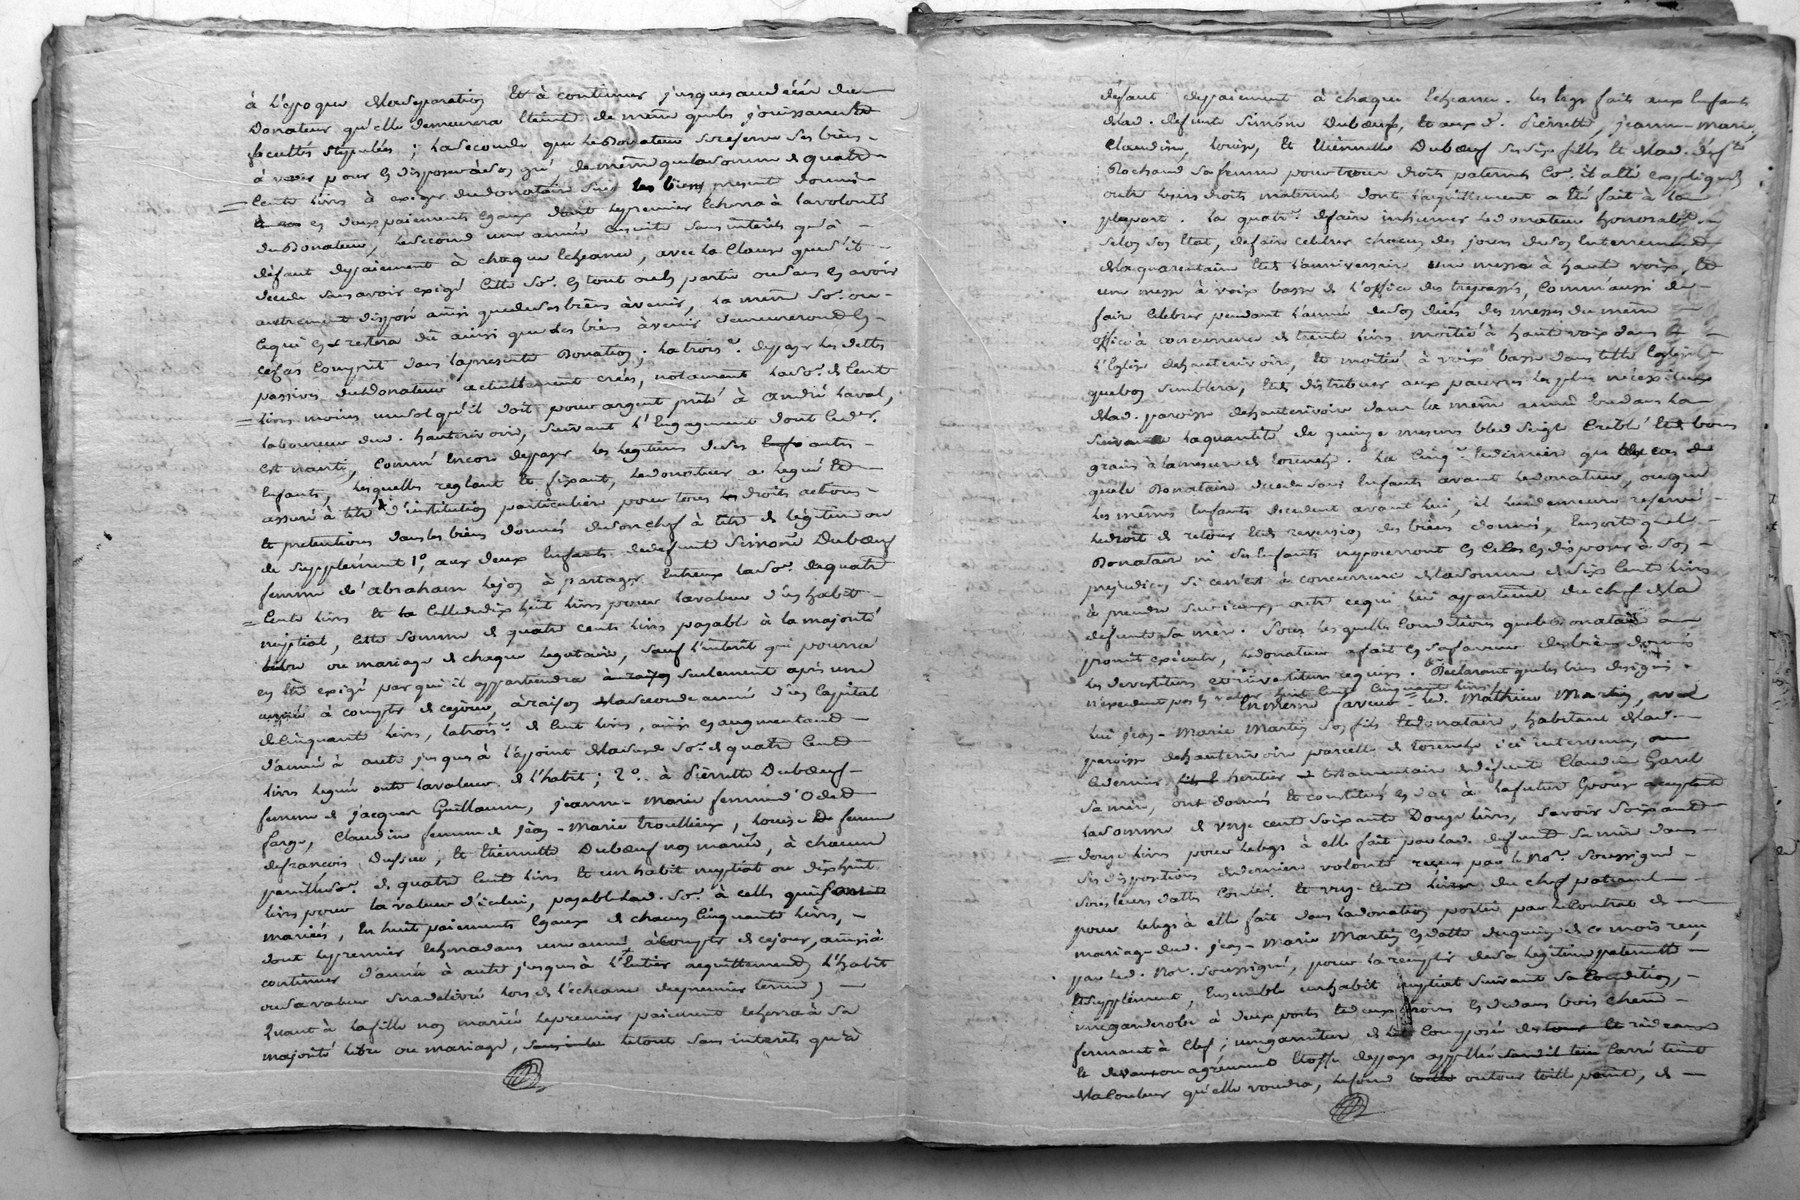 à l'epoque de la separation et à continuer jusques au décès du
Donateur qu'elle demeurera éteinte de même que les jouissances et
facultés stipulées ; la seconde que le Donateur se reserve ses biens
à venir pour en disposer à son gré, de même que la somme de quatre
cents livres à exiger du donataire sur les biens present donnés
en deux paiements egaux dont le premier echerra à la volonté
du Donateur, le second une année ensuite sans interets qu'à
défaut de paiement à chaque echeance, avec la clause que s'il
decede sans avoir exigé cette so. en tout ou en partie ou sans en avoir
autrement disposé ainsi que de ses biens à venir, la même so. ou
ce qui en restera dû ainsi que les biens à venir demeureront en
ce cas compris dans la presente Donation ; la trois.e de payer les dettes
passives du donateur actuellement créés, notament la so. de cent
livres moins un sol qu'il doit pour argent prêté à andré Laval,
laboureur dud. hauterivoire, suivant l'engagement dont led. sr.
est nanti, comme encore de payer les legitimes de ses autres
enfants, lesquelles reglant et fixant, le donateur a legué et
assuré à titre d'institution particulière pour tous droits actions
et pretentions dans les biens donnés de son chef à titre de légitime ou
de supplément 1.o aux deux enfants de defunte Simone Dubœuf
femme d'abraham à partager entreux la so. de quatre
cents livres et celle de dix huit livres pour la valeur d'un habit
nuptial, cette somme de quatre cents livres payable à la majorité
ou mariage de chaque legataire, sauf l'interet qui pourra
en être exigé par qui il appartiendra seulement après une
année à compter de ce jour, à raison de la seconde année d'un capital
de cinquante livres, la trois.e de cent livres, ainsi en augmentant
d'année à autre jusques à l'ajoint de la susd. so. de quatre cent
livres legué outre la valeur de l'habit ; 2.o à Pierrette Dubœuf
femme de jacques Guillaume, jeanne-Marie femme d'Oded
farge, Claudine femme de jean-Marie Trouillieux, louise femme
de francois Dufour, et Etiennette Dubœuf non mariée, à chacune
pareille so. de quatre cents livres et un habit nuptial ou dix huit
livres pour la valeur d'icelui, payable lad. so. à celles qui sont
mariées, en huit paiements egaux de chacun cinquante livres,
dont le premier echerra dans une année à compter de ce jour, ainsi à
continuer d'année à autre jusques à l'entier acquittement, l'habit
ou sa valeur sera delivré lors de l'echeance du premier terme,
Quant à la fille non mariée le premier paiement echerra à sa
majorité ou mariage, le tout sans interets qu'à
défaut de paiement à chaque echeance. les legs faits aux enfants
de lad. defunte Simone Dubœuf, et aux d. Pierrette, jeanne-Marie,
Claudine, louise, et Etiennette Dubœuf ses six filles et de lad. def.te
Rochand sa femme pour tous droits paternels
outre leurs droits maternels dont l'acquittement a été fait à la
plupart. la quatr.e de faire inhumer le donateur honorablem.t
selon son etat, de faire celebrer chacun des jours de son enterrement
de la quarantaine et de l'anniversaire une messe à haute voix, et
une messe à voix basse de l'office des trepassés, comm'aussi de
faire celebrer pendant l'année de son décès des messes du même
office à concurrence de trente livres moitié à haute voix dans
l'Eglise de hauterivoire, et moitié à voix basse dans telle Eglise
que bon semblera, et de distribuer aux pauvres les plus nécessiteux
de lad. paroisse de hauterivoire dans la même année et dans la
suivante la quantité de quinze mesures bled seigle criblé et bons
grains à la mesure de . la cinq.e et derniere qu'au cas
que le Donataire decede sans enfants avant le donateur, ou que
les mêmes enfants decedent avant lui, il lui demeure reservé
le droit de retour et de reversion des biens donnés, ensorte que le
Donataire ni ses enfants ne pourront en ce cas en disposer à son
préjudice, si ce n'est à concurrence de la somme de six cents livres
à prendre sur iceux, outre ce qui lui appartient du chef de la
defunte sa mère. Sous lesquelles conditions que le donataire a
promit executer, le donateur a fait en sa faveur des biens donnés
les devestitures et investitures requises. Declarant que les biens designés
n'excedent pas en valeur huit cent cinquante livres.
En même faveur led. Mathieu Martin, avec
lui jean-Marie Martin son fils et donataire, habitant de lad.
paroisse de hauterivoire parcelle de ici intervenus,
ce dernier heritier testamentaire de defunte Claudine Garel
sa mère, ont donnés et constitués en dot à la future Epouse acceptante
la somme de vingt cent soixante douze livres, savoir soixante
douze livres pour le legs à elle fait par lad. defunte sa mère dans
ses dispositions de derniere volonté reçues par le No.re soussigné
sous leurs dattes et vingt cent livres du chef paternel
pour le legs à elle fait dans la donation portée par le Contrat de
mariage dud. jean-Marie Martin en datte du quinze de ce mois reçu
par led. No.re soussigné, pour la remplir de sa legitime paternelle
et supplément, ensemble un habit nuptial suivant sa condition,
une garderobe à deux ports et deux tiroirs en dedans bois chêne
fermant à clef ; une garniture de lit composée rideaux
et devant ou agrement etoffe de pays appellé carré teint
de la couleur qu'elle voudra, le fond autour toille peinte, de